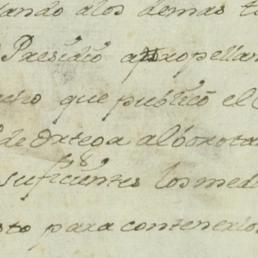 tando alos demas
Presidio atropellan
que publicó el
de Ortega alborota
suficientes los med
sto para contenerlos